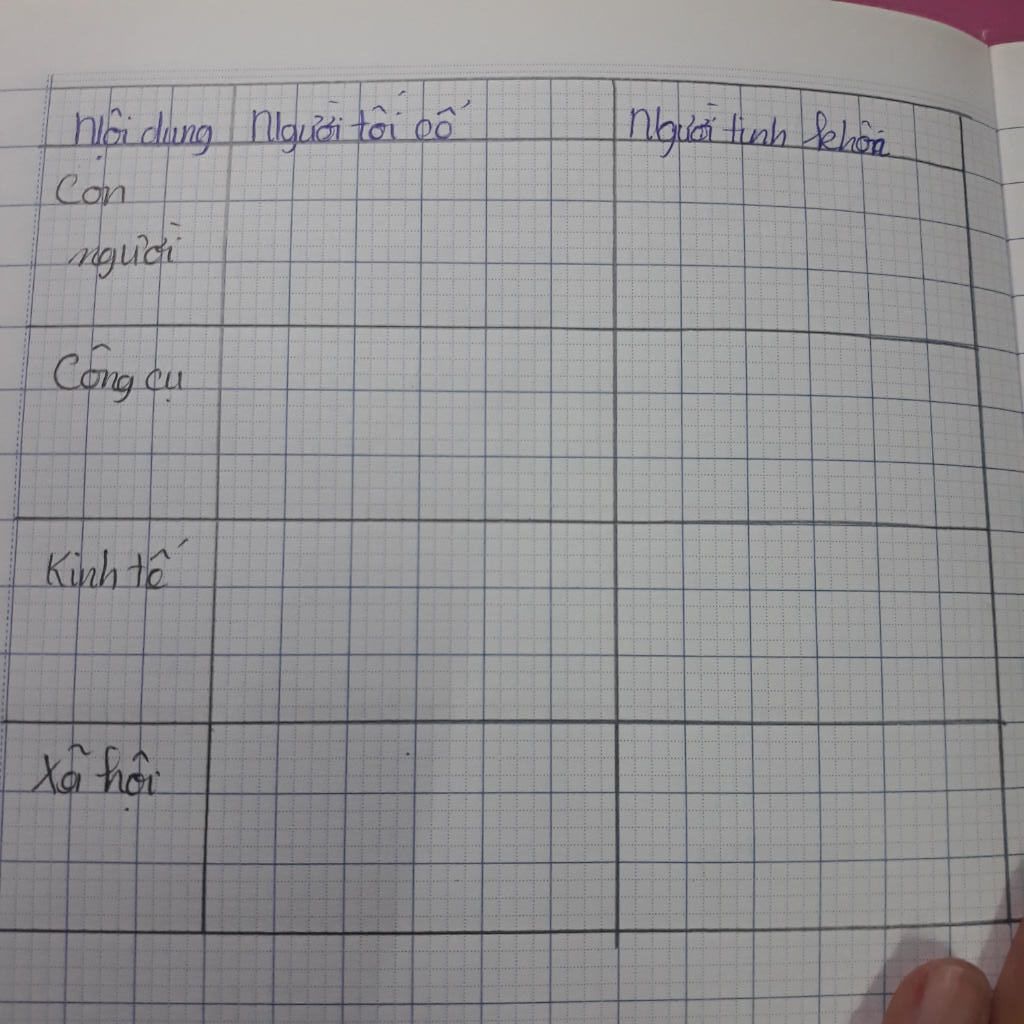 Nội dung Người tối cố Người tinh khôn
Con
người
Công cụ
Kinh tế
Xã hội